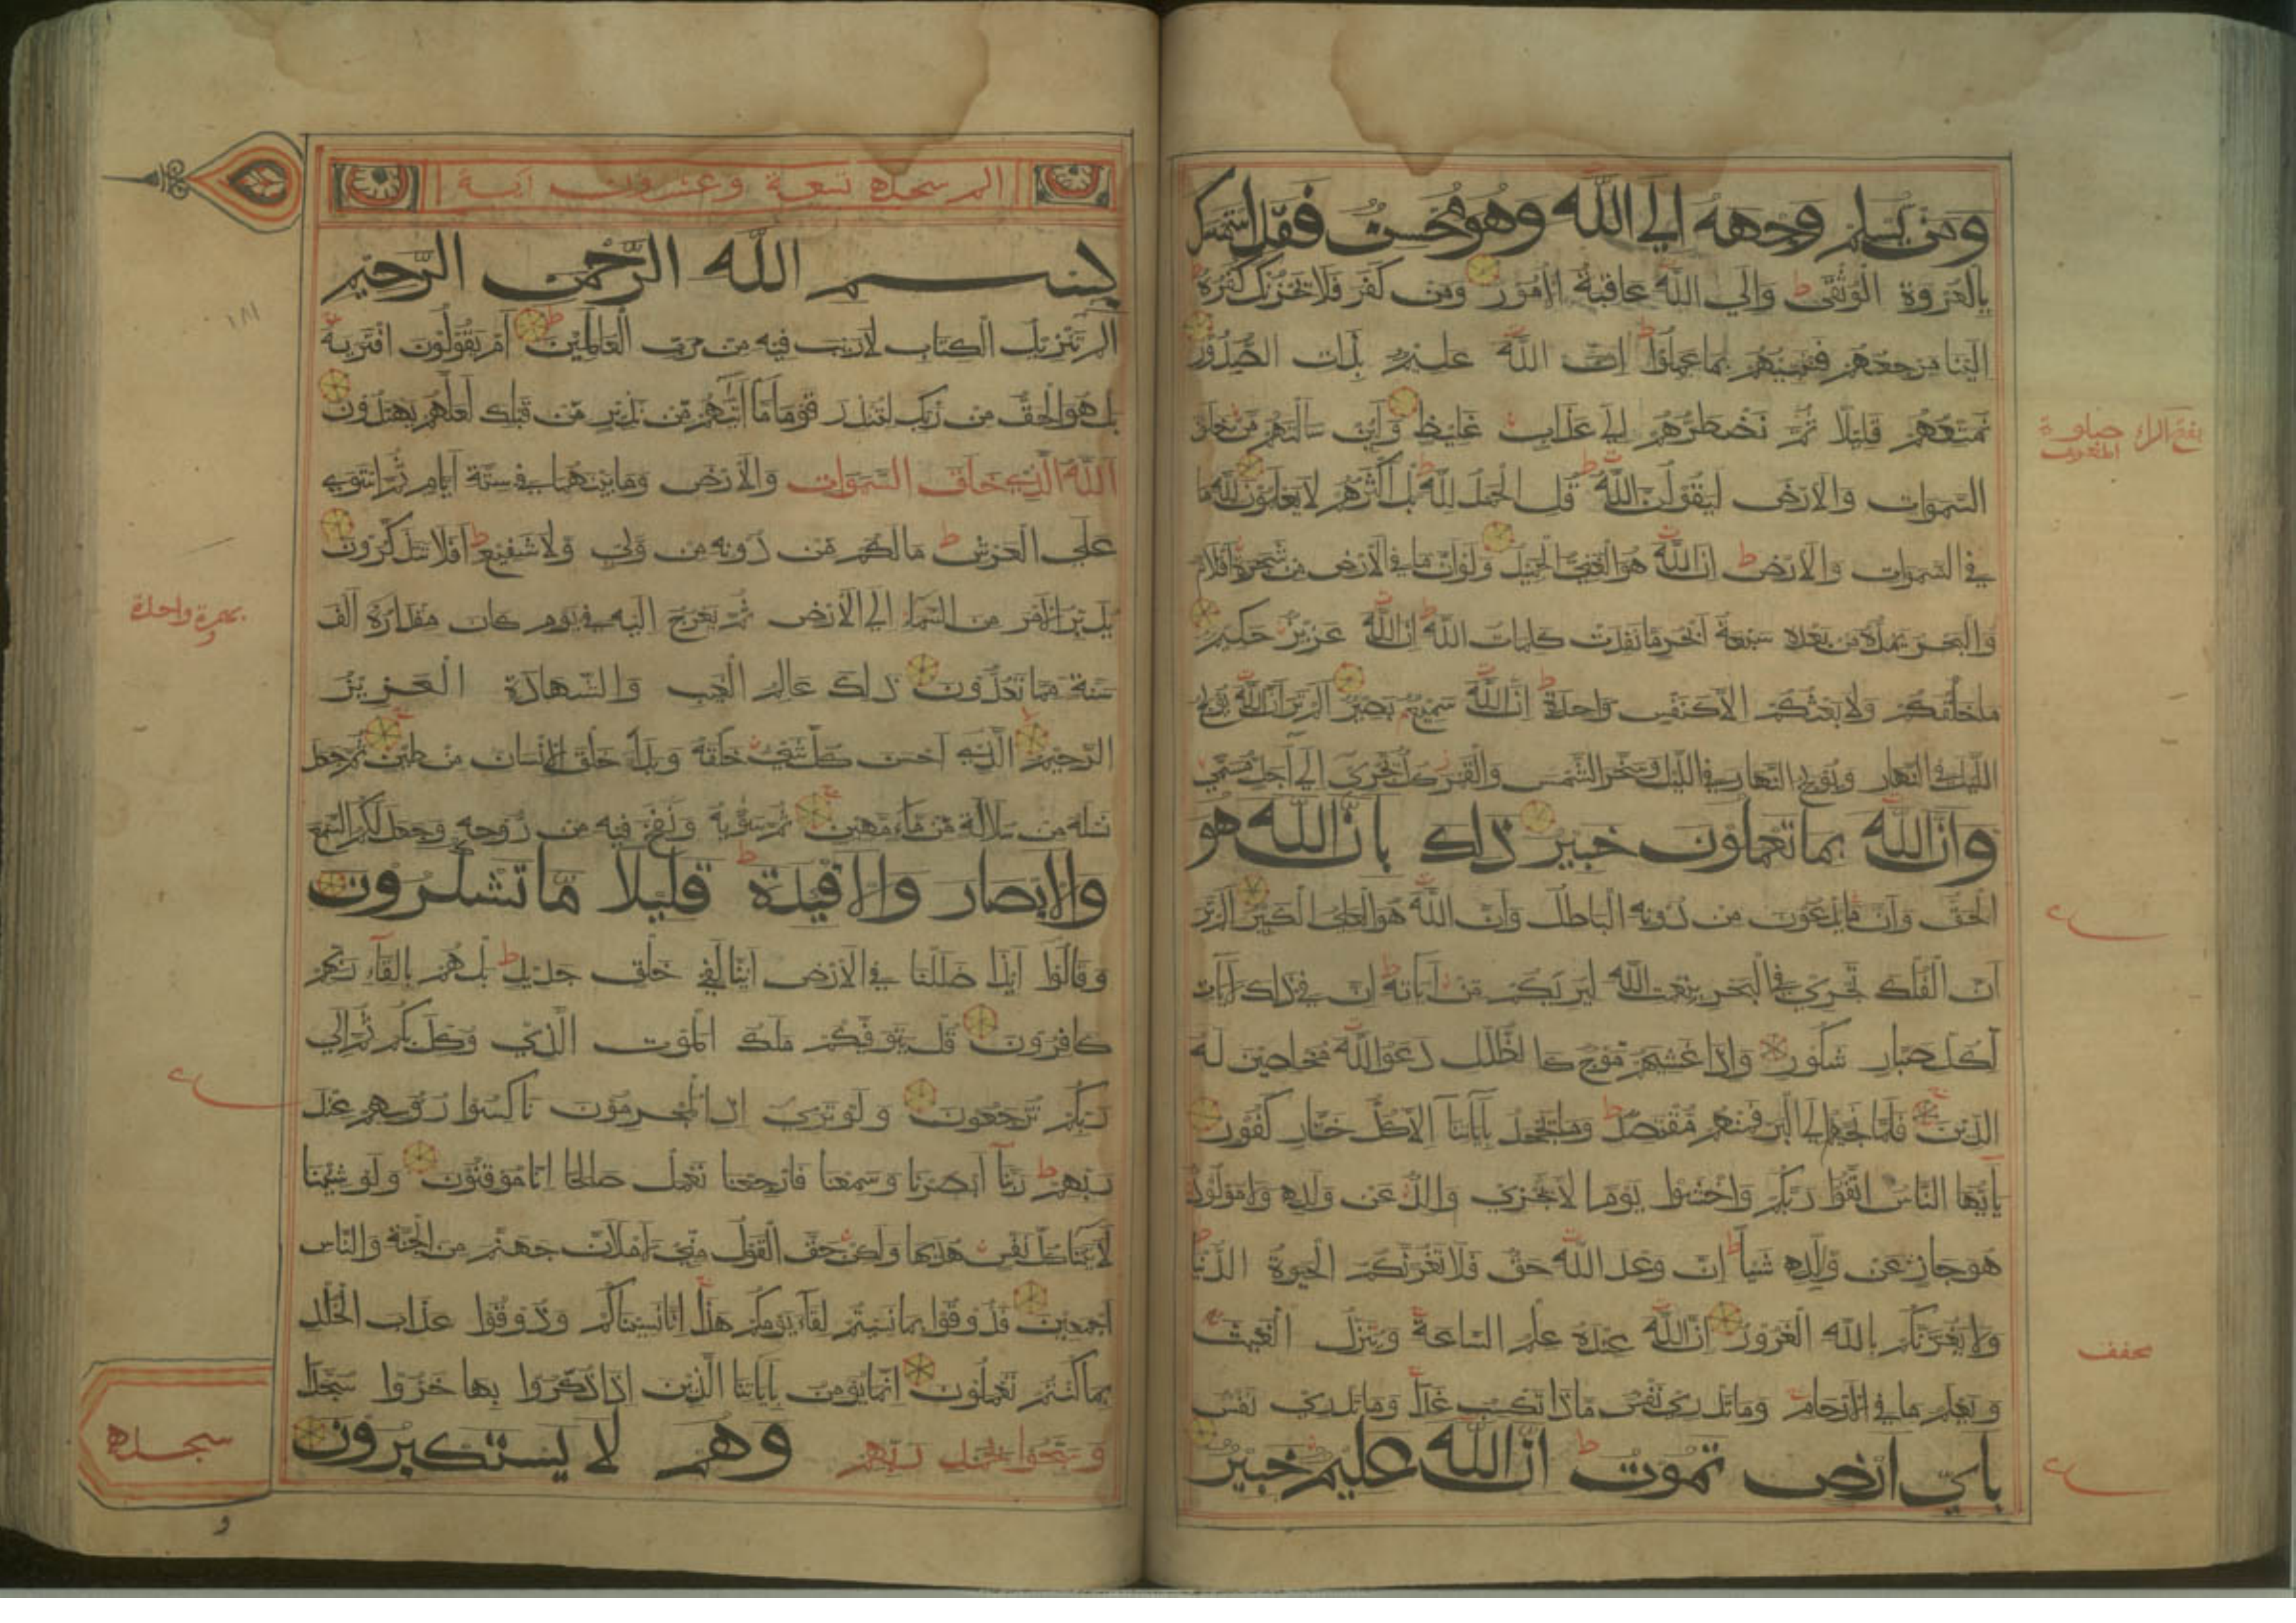 ومن يسلم وجهه الي الله وهو محسن فقد استمسك
بالعروة الوثقى ط والي الله عاقبة الامور ومن كفر فلا يحزنك كفره
الينا مرجعهم فننبئهم بما عملوا ط ان الله عليم بذات الصدور
نمتعهم قليلا ثم نضطرهم الي عذاب غليظ ولئن سالتهم من خلق
السموات والارض ليقولن الله ط قل الحمد لله ط بل اكثرهم لا يعلمون لله ما
في السموات والارض ط ان الله هو الغني الحميد ولو ان ما في الارض من شجرة اقلام
والبحر يمده من بعده سبعة ابحر ما نفدت كلمات الله ط ان الله عزيز حكيم
ما خلقكم ولا بعثكم الا كنفس واحدة ط ان الله سميع بصير الم تر ان الله يولج
الليل في النهار ويولج النهار في الليل وسخر الشمس والقمر كل يجري الي اجل مسمي
وان الله بما تعملون خبير ذلك بان الله هو
الحق وان ما يدعون من دونه الباطل وان الله هو العلي الكبير الم تر
ان الفلك تجري في البحر بنعمت الله ليريكم من اياته ط ان في ذلك لايات
لكل صبار شكور واذا غشيهم موج كالظلل دعوا الله مخلصين له
الدين فلما نجيهم الي البر فمنهم مقتصد ط وما يجحد باياتنا الا كل ختار كفور
يايها الناس اتقوا ربكم واخشوا يوما لا يجزي والد عن ولده ولا مولود
هو جاز عن والده شيا ط ان وعد الله حق فلا تغرنكم الحيوة الدنيا
ولا يغرنكم بالله الغرور ان الله عنده علم الساعة وينزل الغيث
ويعلم ما في الارحام وما تدري نفس ماذا تكسب غدا وما تدري نفس
باي ارض تموت ط ان الله عليم خبير
مخفف
الم سجده تسعة وعشرون اية
بسم الله الرحمن الرحيم
الم تنزيل الكتاب لا ريب فيه من رب العالمين ط ام يقولون افتريه
بل هو الحق من ربك لتنذر قوما ما اتيهم من نذير من قبلك لعلهم يهتدون
الله الذي خلق السموات والارض وما بينهما في ستة ايام ثم استوي
علي العرش ط ما لكم من دونه من ولي ولا شفيع ط افلا تتذكرون
يدبر الامر من السماء الي الارض ثم يعرج اليه في يوم كان مقداره الف
سنة مما تعدون ذلك عالم الغيب والشهادة العزيز
الرحيم الذي احسن كل شيء خلقه وبدا خلق الانسان من طين ثم جعل
نسله من سلالة من ماء مهين ثم سويه ونفخ فيه من روحه وجعل لكم السمع
والابصار والافيدة ط قليلا ما تشكرون
وقالوا ايذا ضللنا في الارض اينا لفي خلق جديد ط بل هم بلقاء ربهم
كافرون قل يتوفيكم ملك الموت الذي وكل بكم ثم الي
ربكم ترجعون ولو تري اذ المجرمون ناكسوا روسهم عند
ربهم ط ربنا ابصرنا وسمعنا فارجعنا نعمل صالحا انا موقنون ولو شينا
لاتينا كل نفس هديها ولكن حق القول مني لاملان جهنم من الجنة والناس
اجمعين فذوقوا بما نسيتم لقاء يومكم هذا انا نسيناكم وذوقوا عذاب الخلد
بما كنتم تعملون انما يومن باياتنا الذين اذا ذكروا بها خروا سجدا
وسبحوا بحمد ربهم وهم لا يستكبرون
سجده